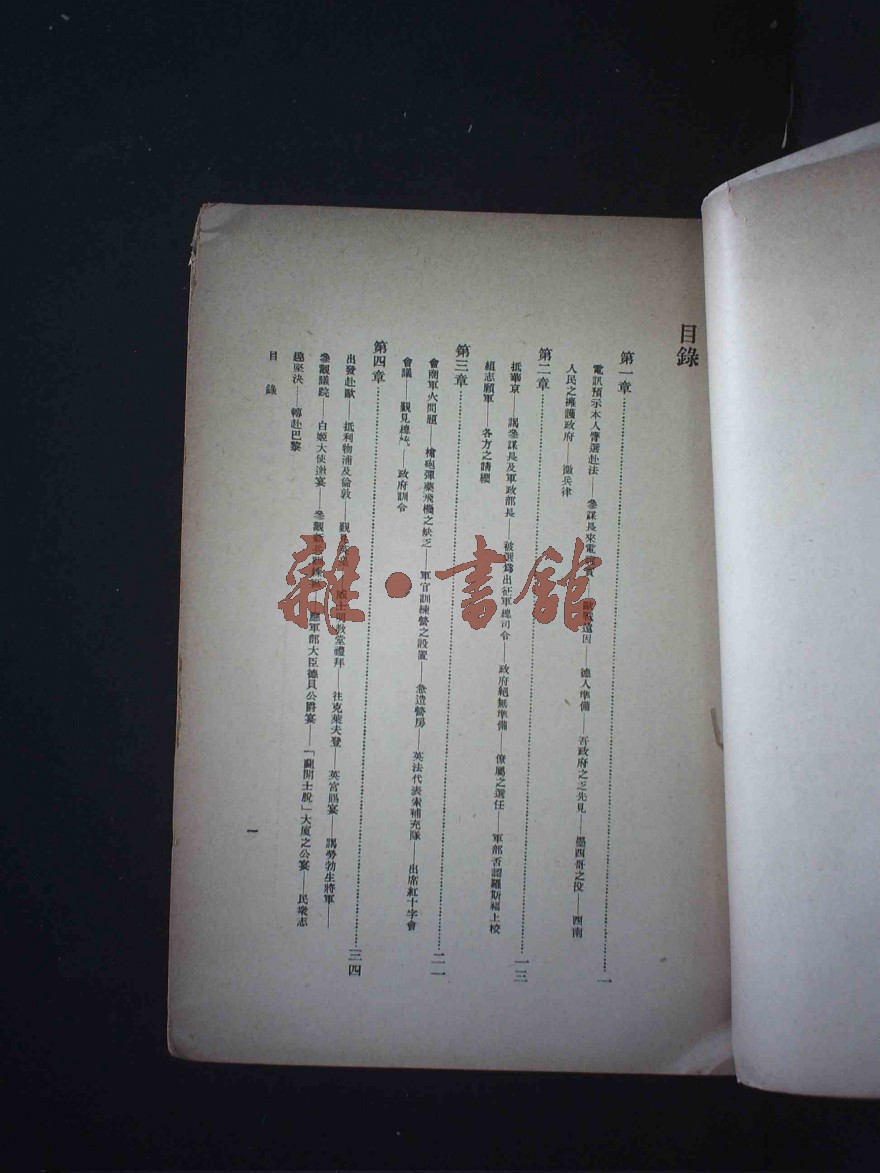 目錄
第一章 一
電訊預示本人膺選赴法——參謀長來電 歐戰遠因——德人準備——吾政府之乏先見——墨西哥之役——西南
人民之擁護政府——徵兵律
第二章 一三
抵華京——謁參謀長及軍政部長——被選為出征軍總司令——政府絕無準備——僚屬之選任——軍部否認羅斯福上校
組志願軍——各方之請纓
第三章 二一
會商軍火問題——槍砲彈藥飛機之缺乏——軍官訓練營之設置——急造營房——英法代表索補充隊——出席紅十字會
會議——覲見總統——政府訓令
第四章 三四
出發赴歐——抵利物浦及倫敦——覲見 威士明教堂禮拜——往克萊夫登——英宮賜宴——謁勞勃生將軍——
參觀議院——白姬大使邀宴——參觀 軍部大臣德貝公爵宴——「蘭開士脫」大廈之公宴——民衆志
趣堅決——轉赴巴黎
目錄
一
雜·書館